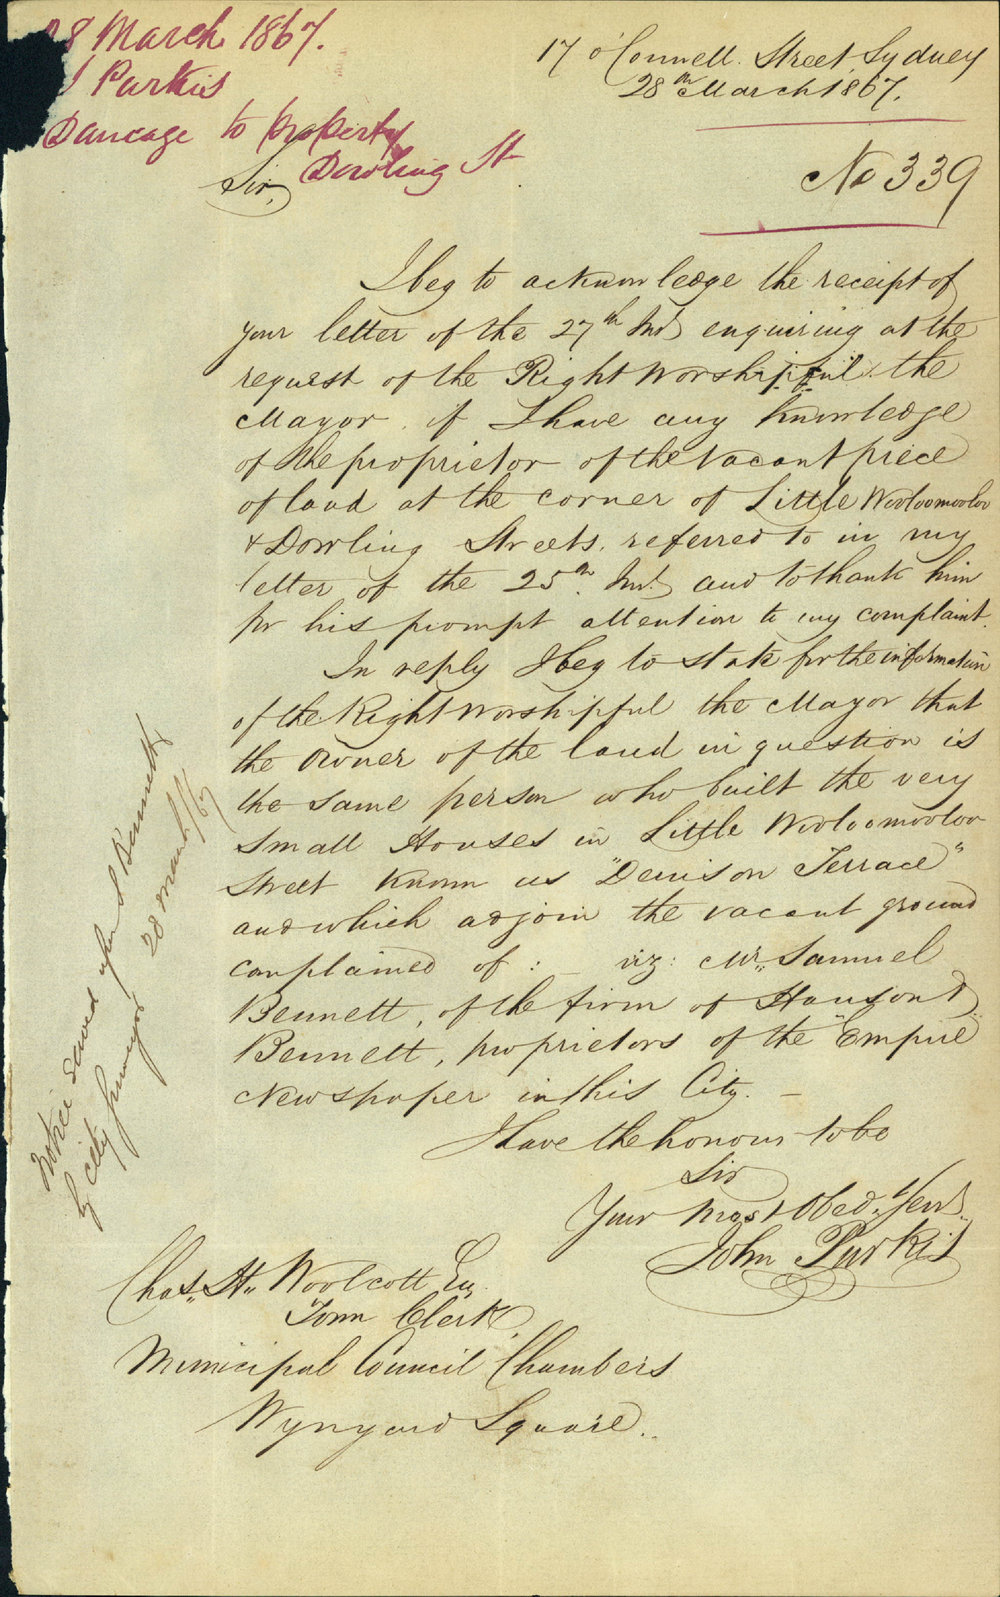 28 March 1867.
J Purkis
Damage to property
Dowling St
17 O'Connell Street, Sydney
28th March 1867.
No 339
Sir,
I beg to acknowledge the receipt of
your letter of the 27th Inst enquiring at the
request of the Right Worshipful the
Mayor if I have any knowledge
of the proprietor of the vacant piece
of land at the corner of Little Wooloomooloo
& Dowling Streets, referred to in my
letter of the 25th Inst. and to thank him
for his prompt attention to my complaint.
In reply I beg to state for the information
of the Right Worshipful the Mayor that
the owner of the land in question is
the same person who built the very
small Houses in Little Wooloomooloo
Street known as "Denison Terrace"
and which adjoin the vacant ground
complained of : – viz: Mr. Samuel
Bennett, of the firm of Hanson &
Bennett, proprietors of the "Empire"
Newspaper in this City. –
I have the honour to be
Sir
Your Most Obed. Servt.
John Purkis
Chas. H. Woolcott Esq
Town Clerk,
Municipal Council Chambers
Wynyard Square.
Notice served upon S Bennett
by City Surveyor 28 March /67